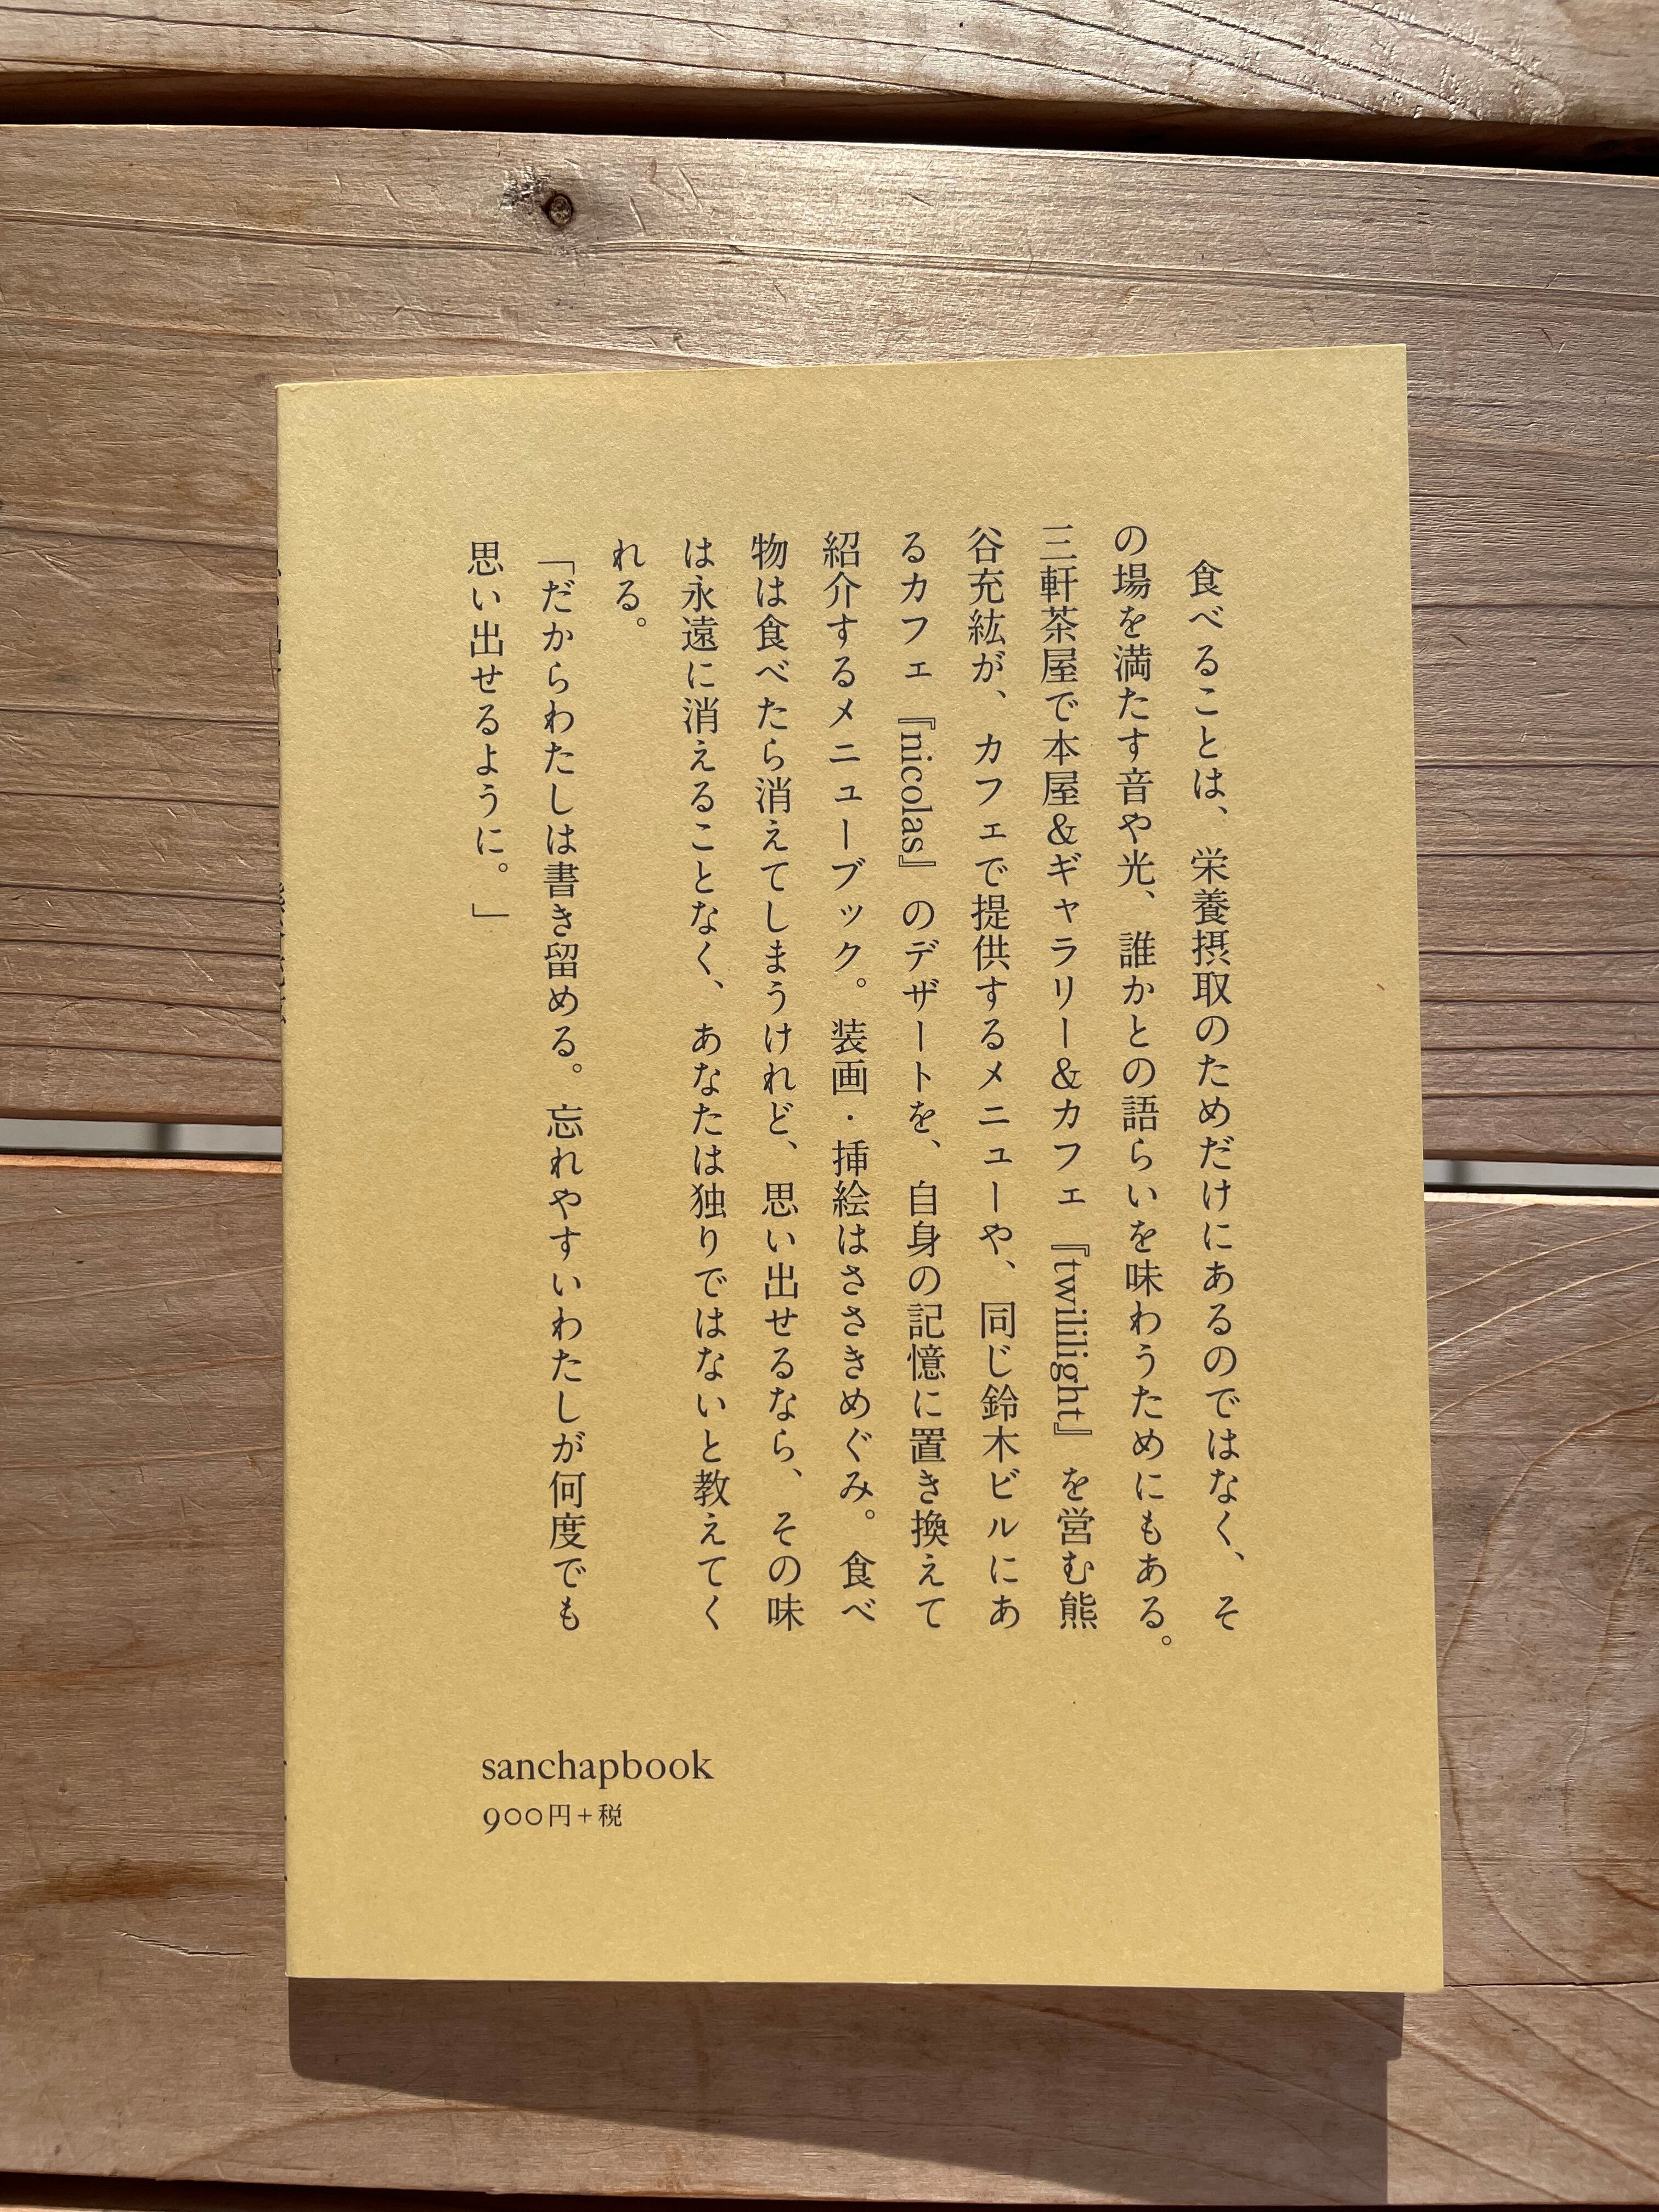 食べることは、栄養摂取のためだけにあるのではなく、そ
の場を満たす音や光、誰かとの語らいを味わうためにもある。
三軒茶屋で本屋&ギャラリー&カフェ『twililight』を営む熊
谷充紘が、カフェで提供するメニューや、同じ鈴木ビルにあ
るカフェ『nicolas』のデザートを、自身の記憶に置き換えて
紹介するメニューブック。装画・挿絵はささきめぐみ。食べ
物は食べたら消えてしまうけれど、思い出せるなら、その味
は永遠に消えることなく、あなたは独りではないと教えてく
れる。
「だからわたしは書き留める。忘れやすいわたしが何度でも
思い出せるように。」
sanchapbook
900円+税